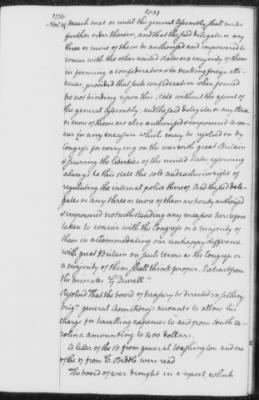 1039
1776
Novr. 14
March next or until the general Assembly shall make
further order therein, and that the said delegates or any
three or more of them be authorised and impowered to
concur with the other united states or a majority of them
in forming a confederation & in making foreign alli-
ances, provided that such confederation when formed
be not binding upon this state without the assent of
the general Assembly; and the said delegates or any three
or more of them are also authorised & impowered to con-
cur in any measures which may be resolved on by
Congress for carrying on the war with great Britain
& securing the liberties of the united states, reserving
always to this state the sole and exclusive right of
regulating the internal police thereof. And the said dele-
gates or any three or more of them are hereby authorised
& impowered notwithstanding any measure heretofore
taken to concur with the Congress or a majority of
them in accommodating our unhappy difference
with great Britain on such terms as the Congress or
a majority of them shall think proper. Extract from
the minutes G Duvall"
Resolved That the board of treasury be directed in settling
brigr. general Armstrong's accounts to allow his
charge for travelling expences to and from South ca-
rolina amounting to 400 dollars.
A letter of the 16 from general Washington and one
of the 17 from C. Biddle were read
The board of war brought in a report which